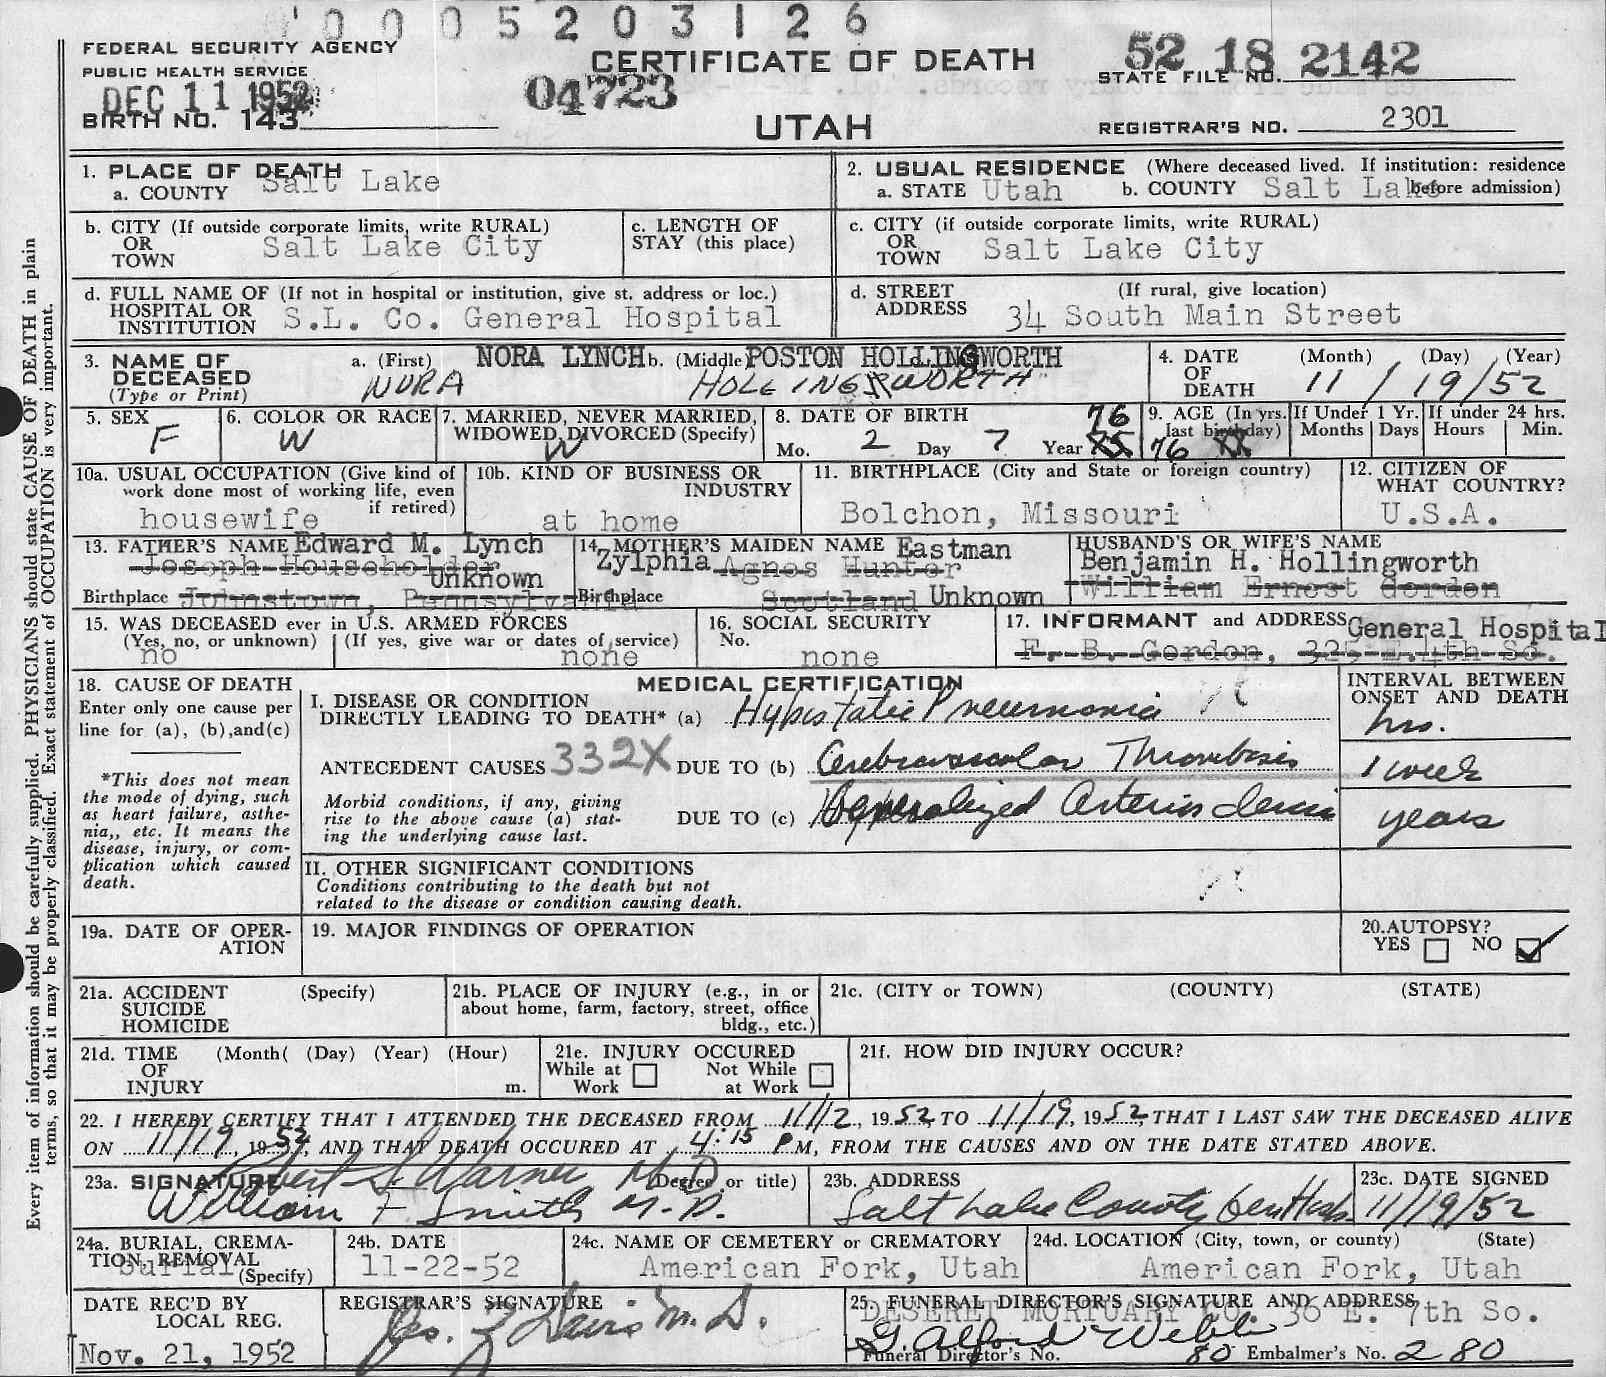 0 0 0 5 2 0 3 1 2 6
FEDERAL SECURITY AGENCY
PUBLIC HEALTH SERVICE
DEC 11 1952
BIRTH NO. 143
CERTIFICATE OF DEATH
04723
UTAH
52 18 2142
STATE FILE NO.
REGISTRAR'S NO. 2301
1. PLACE OF DEATH
a. COUNTY Salt Lake
2. USUAL RESIDENCE (Where deceased lived. If institution: residence before admission)
a. STATE Utah b. COUNTY Salt Lake
b. CITY (If outside corporate limits, write RURAL)
OR
TOWN Salt Lake City
c. LENGTH OF
STAY (this place)
c. CITY (if outside corporate limits, write RURAL)
OR
TOWN Salt Lake City
d. FULL NAME OF (If not in hospital or institution, give st. address or loc.)
HOSPITAL OR
INSTITUTION S.L. Co. General Hospital
d. STREET
ADDRESS (If rural, give location)
34 South Main Street
3. NAME OF
DECEASED
(Type or Print)
a. (First) NORA LYNCH b. (Middle) POSTON HOLLINGWORTH
NORA HOLLINGSWORTH
4. DATE
OF
DEATH
(Month) (Day) (Year)
11 / 19 / 52
5. SEX
F
6. COLOR OR RACE
W
7. MARRIED, NEVER MARRIED,
WIDOWED, DIVORCED (Specify)
W
8. DATE OF BIRTH
Mo. 2 Day 7 Year 76
9. AGE (In yrs.
last birthday)
76
If Under 1 Yr.
Months Days
If under 24 hrs.
Hours Min.
10a. USUAL OCCUPATION (Give kind of
work done most of working life, even
if retired)
housewife
10b. KIND OF BUSINESS OR
INDUSTRY
at home
11. BIRTHPLACE (City and State or foreign country)
Bolchon, Missouri
12. CITIZEN OF
WHAT COUNTRY?
U.S.A.
13. FATHER'S NAME Edward M. Lynch
Joseph Householder
Unknown
Birthplace Johnstown, Pennsylvania
14. MOTHER'S MAIDEN NAME Eastman
Zylphia Agnes Hunter
Birthplace Scotland Unknown
HUSBAND'S OR WIFE'S NAME
Benjamin H. Hollingworth
William Ernest Gordon
15. WAS DECEASED ever in U.S. ARMED FORCES
(Yes, no, or unknown) (If yes, give war or dates of service)
no none
16. SOCIAL SECURITY
No.
none
17. INFORMANT and ADDRESS General Hospital
F. B. Gordon, 325 E. 4th So.
18. CAUSE OF DEATH
Enter only one cause per
line for (a), (b), and (c)
*This does not mean
the mode of dying, such
as heart failure, asthe-
nia,, etc. It means the
disease, injury, or com-
plication which caused
death.
MEDICAL CERTIFICATION
I. DISEASE OR CONDITION
DIRECTLY LEADING TO DEATH* (a) Hypostatic Pneumonia
ANTECEDENT CAUSES 332X DUE TO (b) Cerebrovascular Thrombosis
Morbid conditions, if any, giving
rise to the above cause (a) stat-
ing the underlying cause last.
DUE TO (c) Generalized Arteriosclerosis
INTERVAL BETWEEN
ONSET AND DEATH
hrs.
1 week
years
II. OTHER SIGNIFICANT CONDITIONS
Conditions contributing to the death but not
related to the disease or condition causing death.
19a. DATE OF OPER-
ATION
19. MAJOR FINDINGS OF OPERATION
20. AUTOPSY?
YES NO
21a. ACCIDENT (Specify)
SUICIDE
HOMICIDE
21b. PLACE OF INJURY (e.g., in or
about home, farm, factory, street, office
bldg., etc.)
21c. (CITY or TOWN) (COUNTY) (STATE)
21d. TIME (Month( (Day) (Year) (Hour)
OF
INJURY m.
21e. INJURY OCCURED
While at Not While
Work at Work
21f. HOW DID INJURY OCCUR?
22. I HEREBY CERTIFY THAT I ATTENDED THE DECEASED FROM 11/12, 1952 TO 11/19, 1952, THAT I LAST SAW THE DECEASED ALIVE
ON 11/19, 1952, AND THAT DEATH OCCURED AT 4:15 P M, FROM THE CAUSES AND ON THE DATE STATED ABOVE.
23a. SIGNATURE (Degree or title)
Robert S. Warner M.D.
William F. Smith M.D.
23b. ADDRESS
Salt Lake County Gen Hosp.
23c. DATE SIGNED
11/19/52
24a. BURIAL, CREMA-
TION, REMOVAL
(Specify)
burial
24b. DATE
11-22-52
24c. NAME OF CEMETERY or CREMATORY
American Fork, Utah
24d. LOCATION (City, town, or county) (State)
American Fork, Utah
DATE REC'D BY
LOCAL REG.
Nov. 21, 1952
REGISTRAR'S SIGNATURE
Jas. Z. Davis M.D.
25. FUNERAL DIRECTOR'S SIGNATURE AND ADDRESS
DESERET MORTUARY CO. 36 E. 7th So.
G. Alford Webb
Funeral Director's No. 80 Embalmer's No. 280
Every item of information should be carefully supplied. PHYSICIANS should state CAUSE OF DEATH in plain
terms, so that it may be properly classified. Exact statement of OCCUPATION is very important.